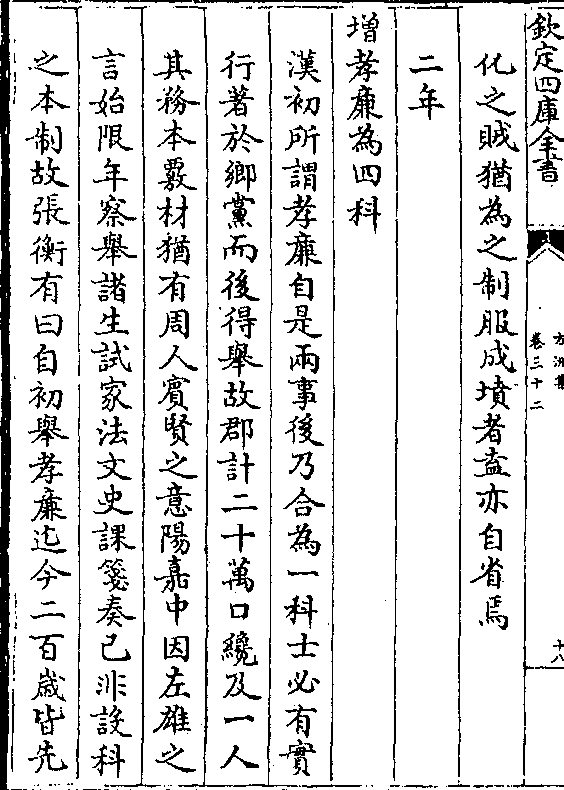 欽定四庫全書
方洲集
卷三十二
十八
化之賊猶為之制服成墳者盍亦自省焉
二年
增孝廉為四科
漢初所謂孝廉自是兩事後乃合為一科士必有實
行著於鄉黨而後得舉故郡計二十萬口纔及一人
其務本覈材猶有周人賓賢之意陽嘉中因左雄之
言始限年察舉諸生試家法文史課箋奏已非設科
之本制故張衡有曰自初舉孝廉迄今二百歲皆先